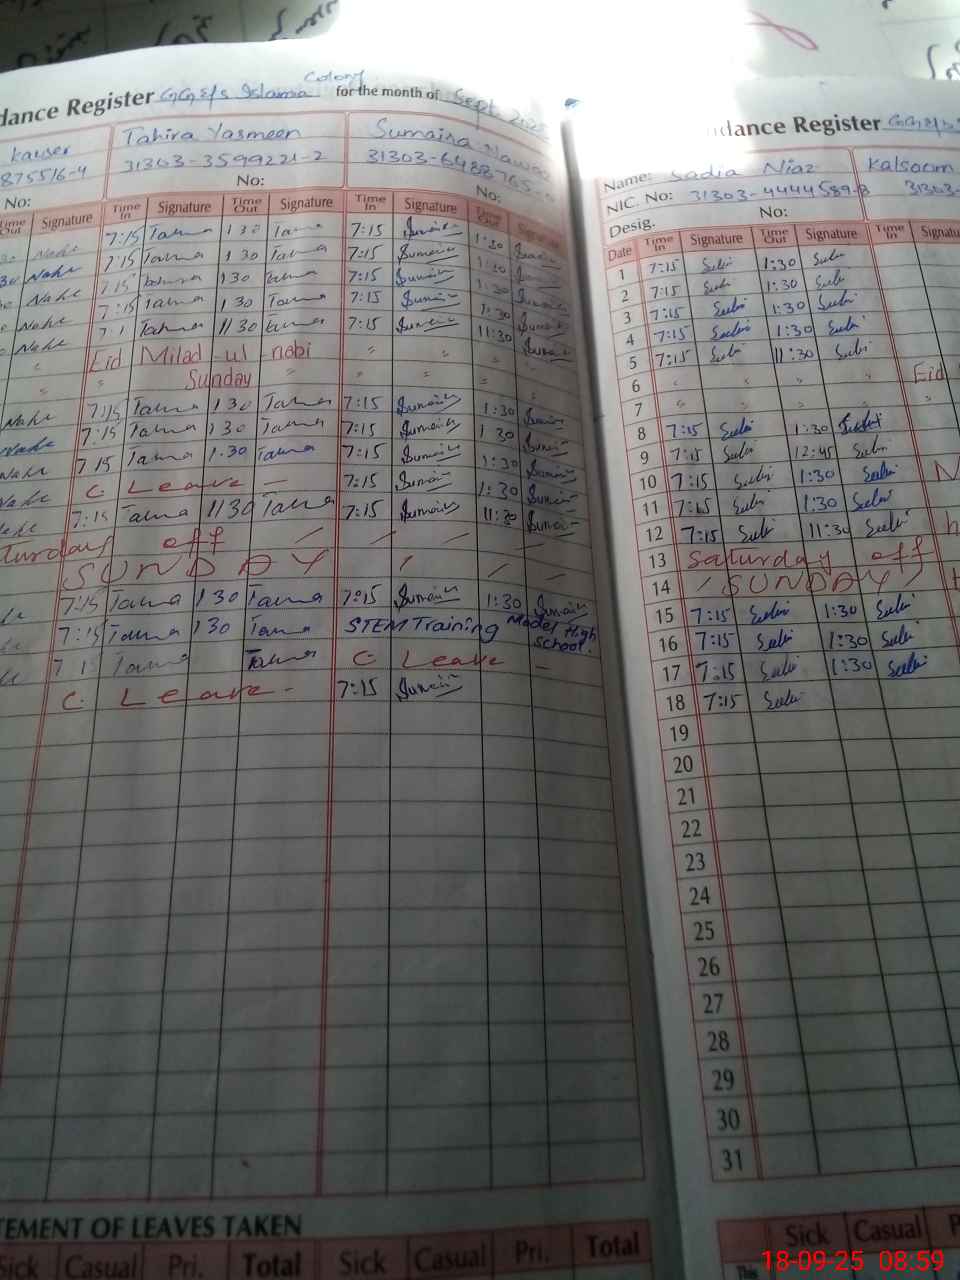 dance Register GGE/S Islamia Colony for the month of Sept. 202
kauser Tahira Yasmeen Sumaira Nawa
875516-4 31303-3599221-2 31303-6488765
No: No: No:
Time Out Signature Time In Signature Time Out Signature Time In Signature Time Out Signature
30 Nahe 7:15 Tahira 1 30 Tahira 7:15 Sumaira 1:30 Sumaira
30 Nahe 7:15 Tahira 1 30 Tahira 7:15 Sumaira 1:30 Sumaira
Nahe 7:15 Tahira 1 30 Tahira 7:15 Sumaira 1:30 Sumaira
Nahe 7:15 Tahira 1 30 Tahira 7:15 Sumaira 1:30 Sumaira
Nahe 7:1 Tahira 11 30 Tahira 7:15 Sumaira 11:30 Sumaira
" Eid Milad-ul-nabi " " "
" Sunday " " " "
Nahe 7:15 Tahira 1 30 Tahira 7:15 Sumaira 1:30 Sumaira
Nahe 7:15 Tahira 1 30 Tahira 7:15 Sumaira 1 30 Sumaira
Nahe 7 15 Tahira 1.30 Tahira 7:15 Sumaira 1:30 Sumaira
Nahe C. Leave - 7:15 Sumaira 1:30 Sumaira
7:15 Tahira 11 30 Tahira 7:15 Sumaira 11:30 Sumaira
turday off
SUNDAY
7:15 Tahira 1 30 Tahira 7:15 Sumaira 1:30 Sumaira
7:15 Tahira 1 30 Tahira STEM Training Model High School.
7 15 Tahira Tahira C. Leave -
C. Leave - 7:15 Sumaira
TEMENT OF LEAVES TAKEN
Sick Casual Pri. Total Sick Casual Pri. Total
dance Register GGE/S
Name: Sadia Niaz Kalsoom
NIC. No: 31303-4444589-8 31303-
Desig. No:
Date Time In Signature Time Out Signature Time In Signatu
1 7:15 Sadia 1:30 Sadia
2 7:15 Sadia 1:30 Sadia
3 7:15 Sadia 1:30 Sadia
4 7:15 Sadia 1:30 Sadia
5 7:15 Sadia 11:30 Sadia
6 " " " " Eid
7 " " " " "
8 7:15 Sadia 1:30 Sadia
9 7:15 Sadia 12:45 Sadia
10 7:15 Sadia 1:30 Sadia
11 7:15 Sadia 1:30 Sadia
12 7:15 Sadia 11:30 Sadia
13 Saturday off
14 SUNDAY
15 7:15 Sadia 1:30 Sadia
16 7:15 Sadia 1:30 Sadia
17 7:15 Sadia 1:30 Sadia
18 7:15 Sadia
19
20
21
22
23
24
25
26
27
28
29
30
31
Sick Casual P
This
18-09-25 08:59